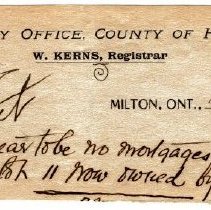 Y OFFICE, COUNTY OF H
W. KERNS, Registrar
MILTON, ONT.,
ear to be no mortgages
lot 11 now owned by